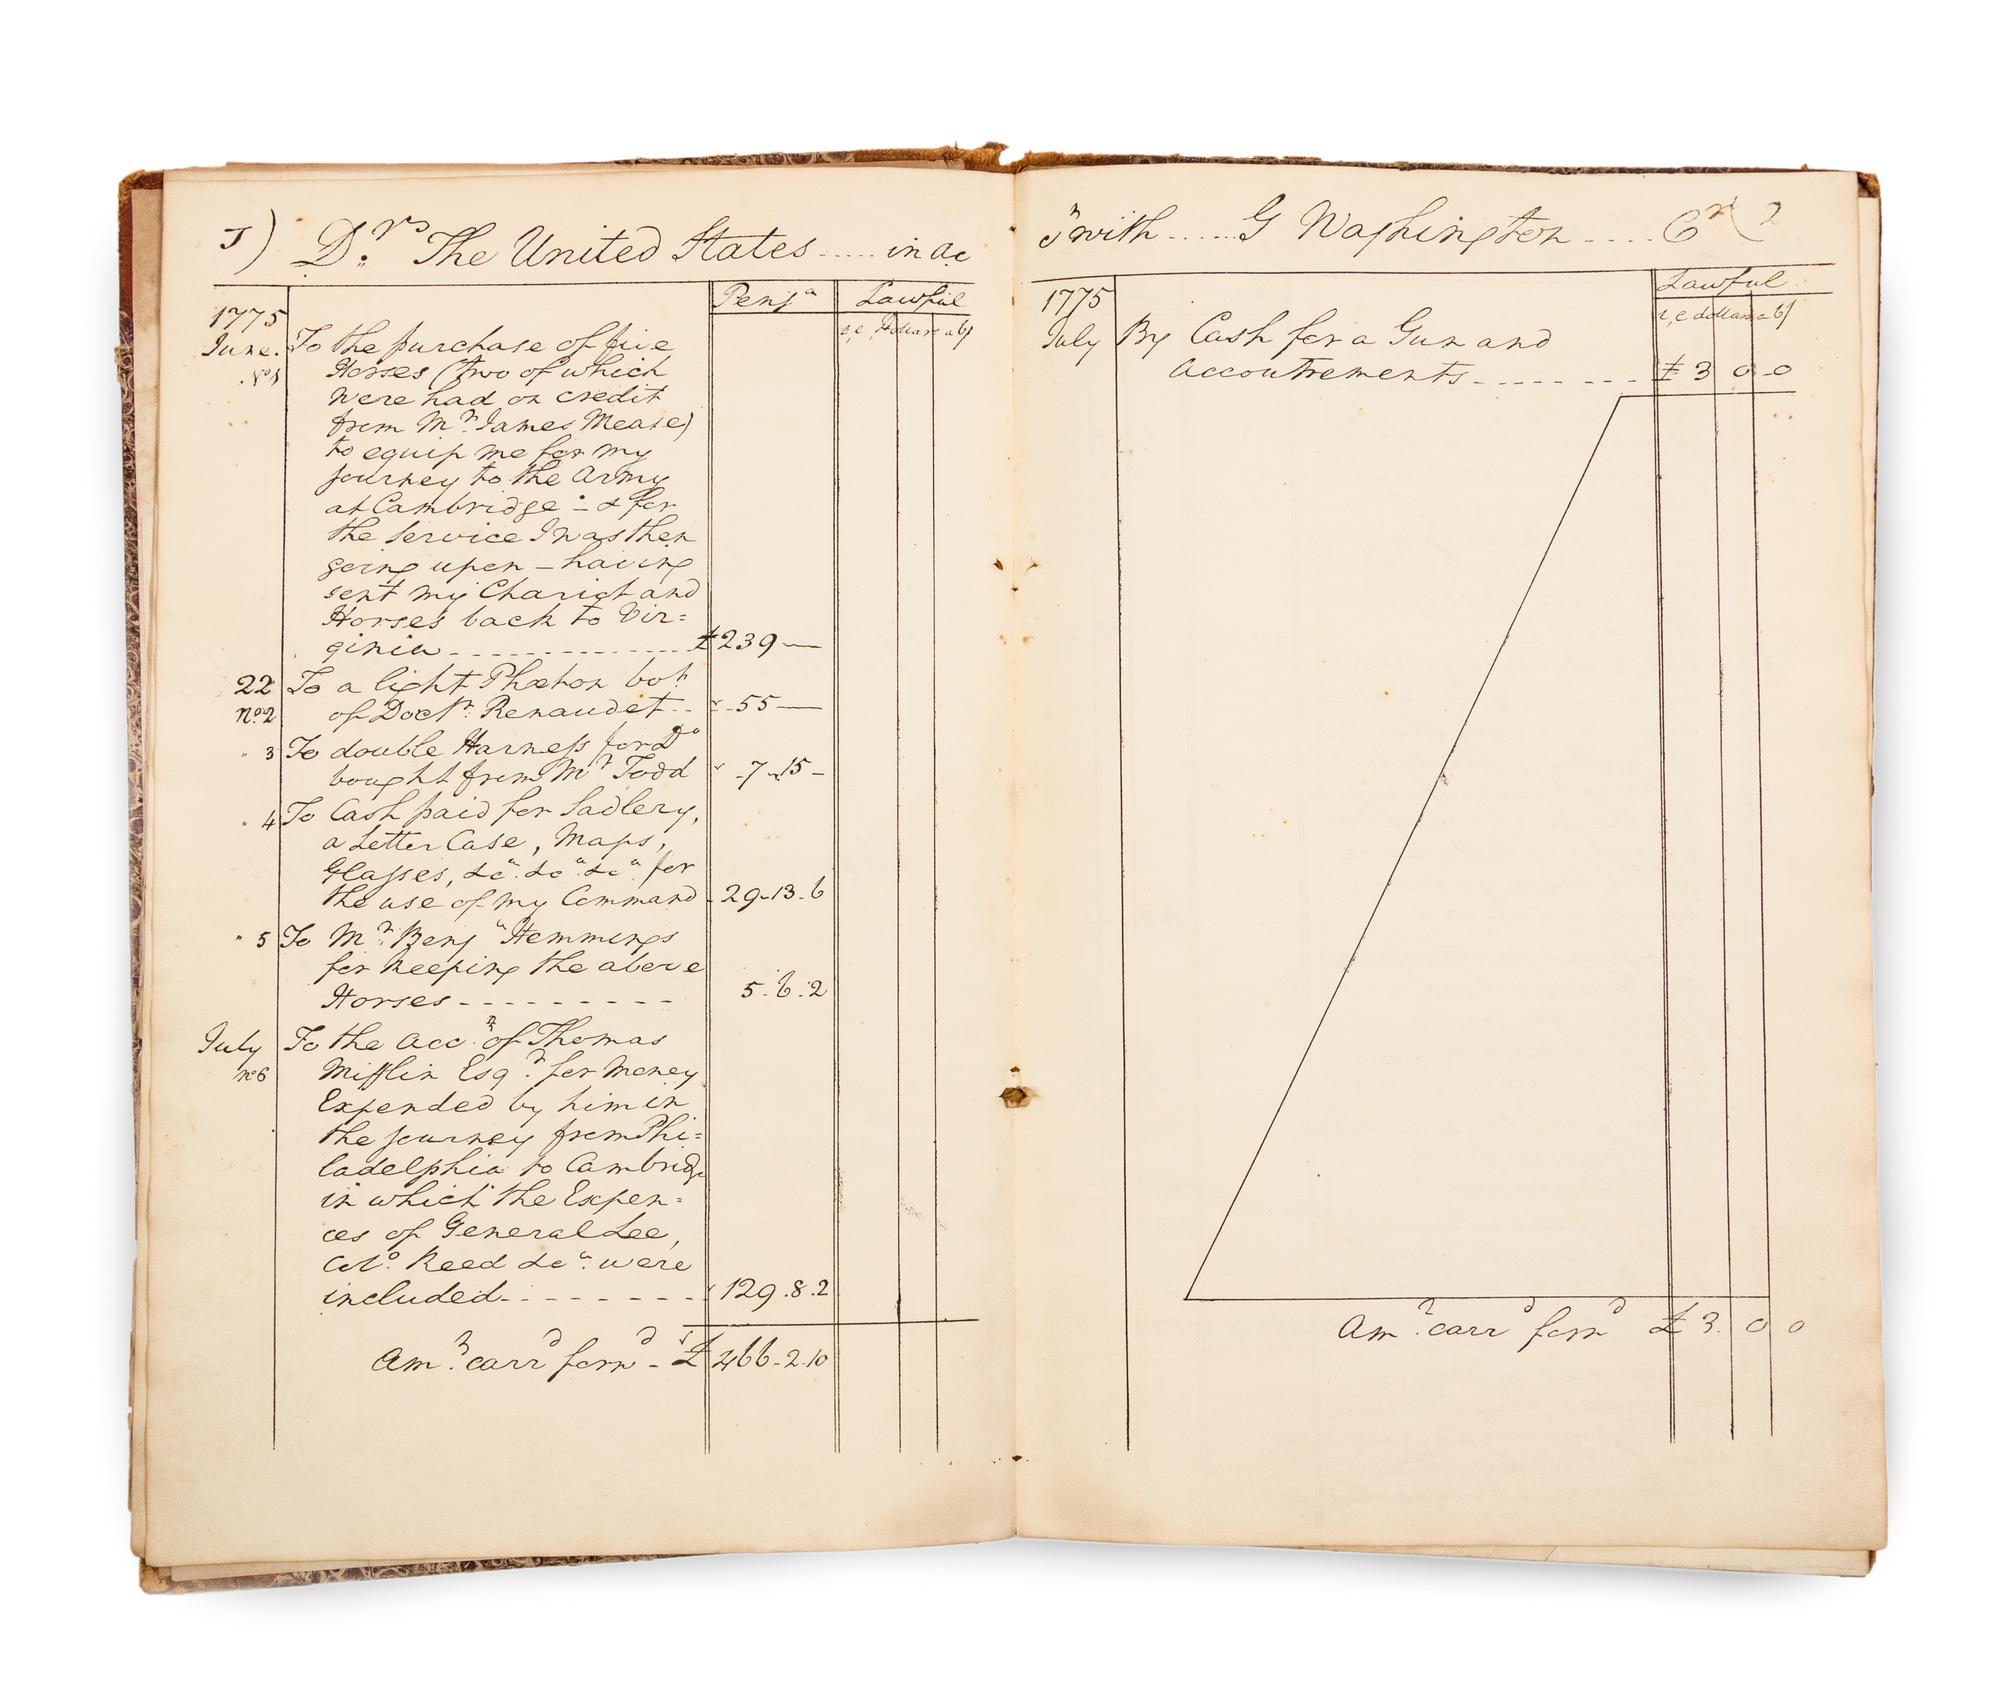 Drs. The United States ..... in ac
Pensa Lawful
1775
June. To the purchase of five
No 1 Horses (two of which
were had on credit
from Mr. James Mease)
to equip me for my
journey to the Army
at Cambridge - & for
the Service I was then
going upon - having
sent my Chariot and
Horses back to Vir=
ginia £239 —
22 To a light Phæton bot.
No. 2 of Doctr. Renaudet 55 —
" 3 To double Harness for Do
bought from Mr Todd 7.15 -
" 4 To Cash paid for Sadlery,
a Letter Case, Maps,
Glasses, &ca. &ca. &ca. for
the use of my Command 29.13.6
" 5 To Mr. Benja Hemmings
for keeping the above
Horses 5.6.2
July To the acct. of Thomas
No 6 Mifflin Esqr. for money
Expended by him in
the journey from Phi=
ladelphia to Cambridge
in which the Expen=
ces of General Lee,
Colo. Reed &ca. were
included 129.8.2
Amt. carrd forwd - £466.2.10
t with ...... G Washington ..... Cr (2
1775 Lawful
July By Cash for a Gun and
accoutrements £3 0 0
Amt. carrd forwd £3. 0 0